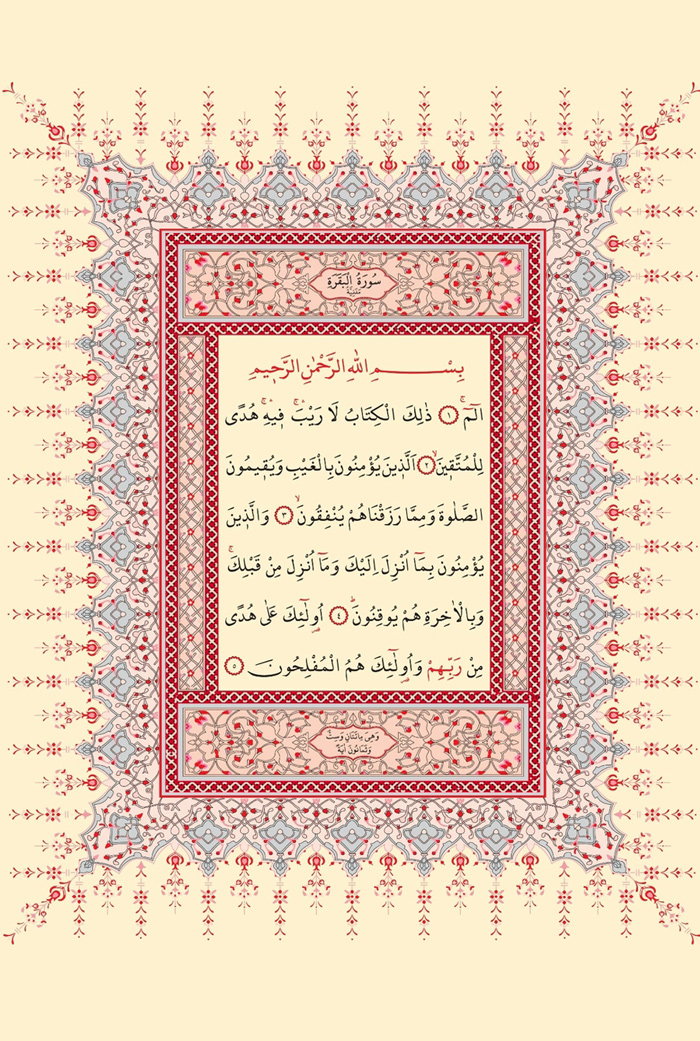 سُورَةُ الْبَقَرَةِ
مَدَنِيَّةٌ
بِسْمِ اللّٰهِ الرَّحْمٰنِ الرَّح۪يمِ
الٓمٓۚ ﴿١﴾ ذٰلِكَ الْكِتَابُ لَا رَيْبَۚۛ ف۪يهِۚۛ هُدًى
لِلْمُتَّق۪ينَۙ ﴿٢﴾ اَلَّذ۪ينَ يُؤْمِنُونَ بِالْغَيْبِ وَيُق۪يمُونَ
الصَّلٰوةَ وَمِمَّا رَزَقْنَاهُمْ يُنْفِقُونَۙ ﴿٣﴾ وَالَّذ۪ينَ
يُؤْمِنُونَ بِمَٓا اُنْزِلَ اِلَيْكَ وَمَٓا اُنْزِلَ مِنْ قَبْلِكَۚ
وَبِالْاٰخِرَةِ هُمْ يُوقِنُونَۜ ﴿٤﴾ اُو۬لٰٓئِكَ عَلٰى هُدًى
مِنْ رَبِّهِمْ وَاُو۬لٰٓئِكَ هُمُ الْمُفْلِحُونَ ﴿٥﴾
وَهِىَ مِائَتَانِ وَسِتٌّ
وَثَمَانُونَ اٰيَةً